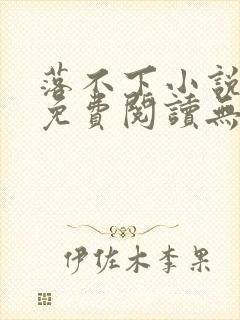 落不下小說
免費閱讀無
伊佐木李果